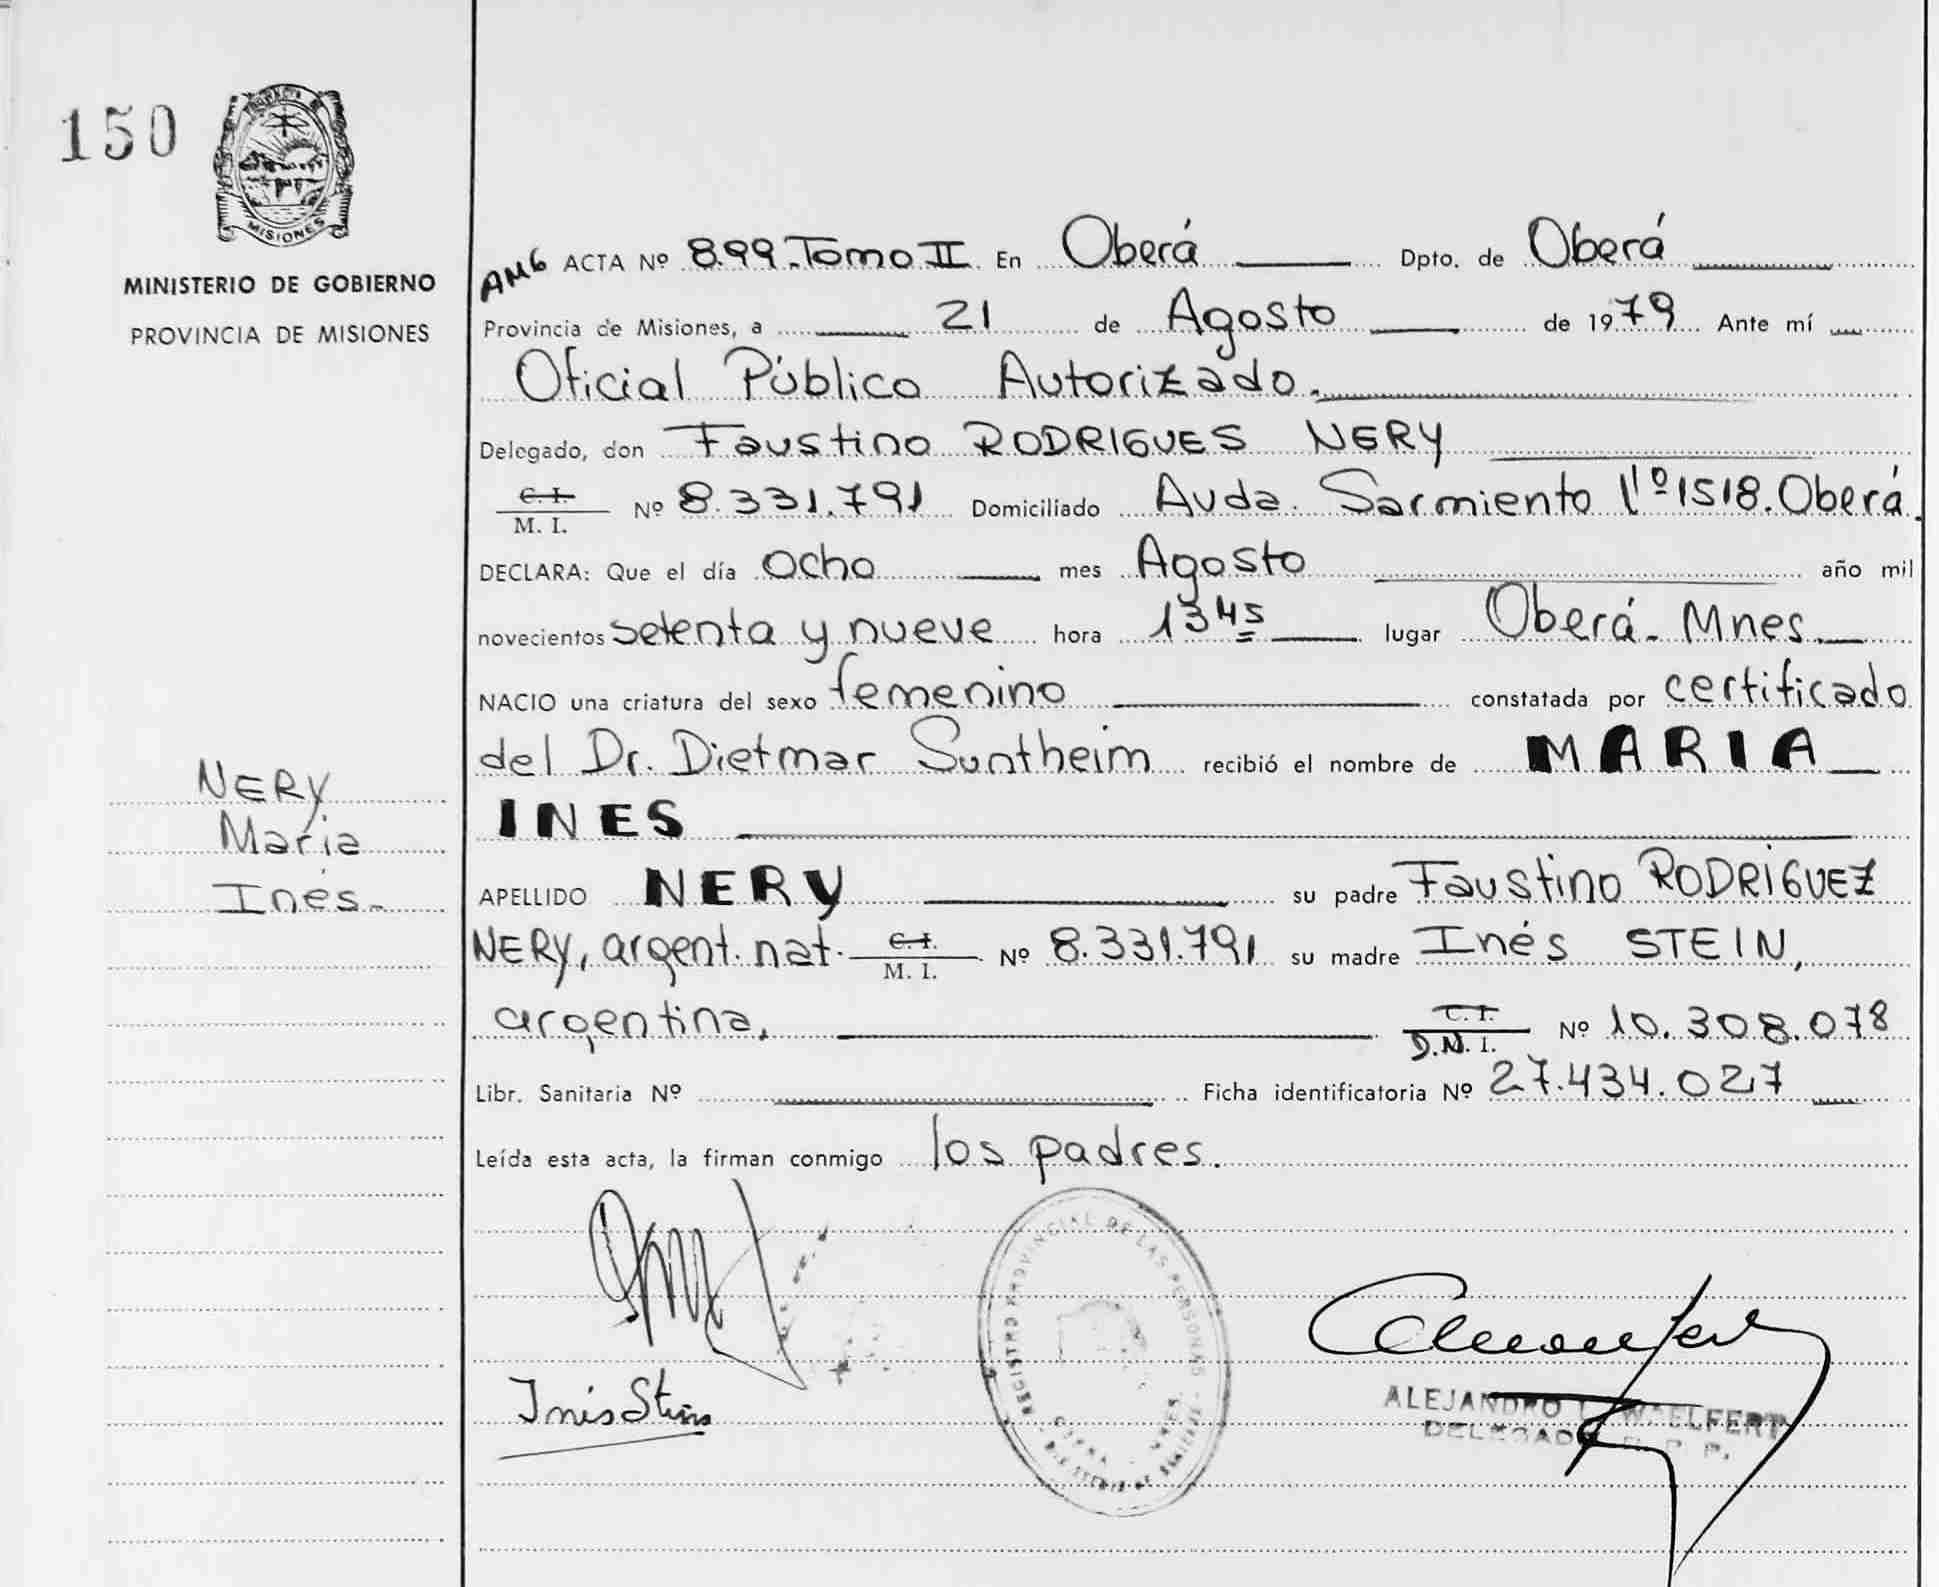 150
MISIONES
MINISTERIO DE GOBIERNO
PROVINCIA DE MISIONES
NERY
Maria
Inés.-
AMG ACTA Nº 899.Tomo II En Oberá Dpto. de Oberá
Provincia de Misiones, a 21 de Agosto de 1979 Ante mí
Oficial Público Autorizado.
Delegado, don Faustino RODRIGUES NERY
C. I.
M. I. Nº 8.331.791 Domiciliado Avda. Sarmiento Nº1518. Oberá.
DECLARA: Que el día ocho mes Agosto año mil
novecientos setenta y nueve hora 13 45 lugar Oberá. Mnes.
NACIO una criatura del sexo femenino constatada por certificado
del Dr. Dietmar Suntheim recibió el nombre de MARIA
INES
APELLIDO NERY su padre Faustino RODRIGUEZ
NERY, argent. nat. C. I.
M. I. Nº 8.331.791 su madre Inés STEIN,
argentina, C. I.
D.N. I. Nº 10.308.078
Libr. Sanitaria Nº Ficha identificatoria Nº 27.434.027
Leída esta acta, la firman conmigo los padres.
REGISTRO PROVINCIAL DE LAS PERSONAS
Inés Stein
ALEJANDRO WOELFERT
DELEGADO R. P. P.